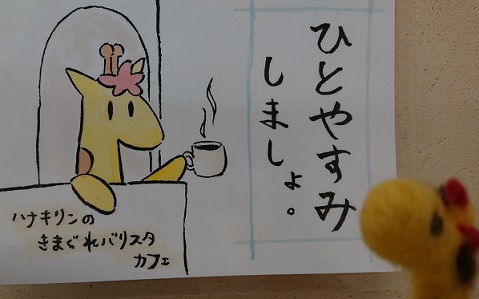 ひとやすみ
しましょ。
ハナキリンの
きまぐれバリスタ
カフェ